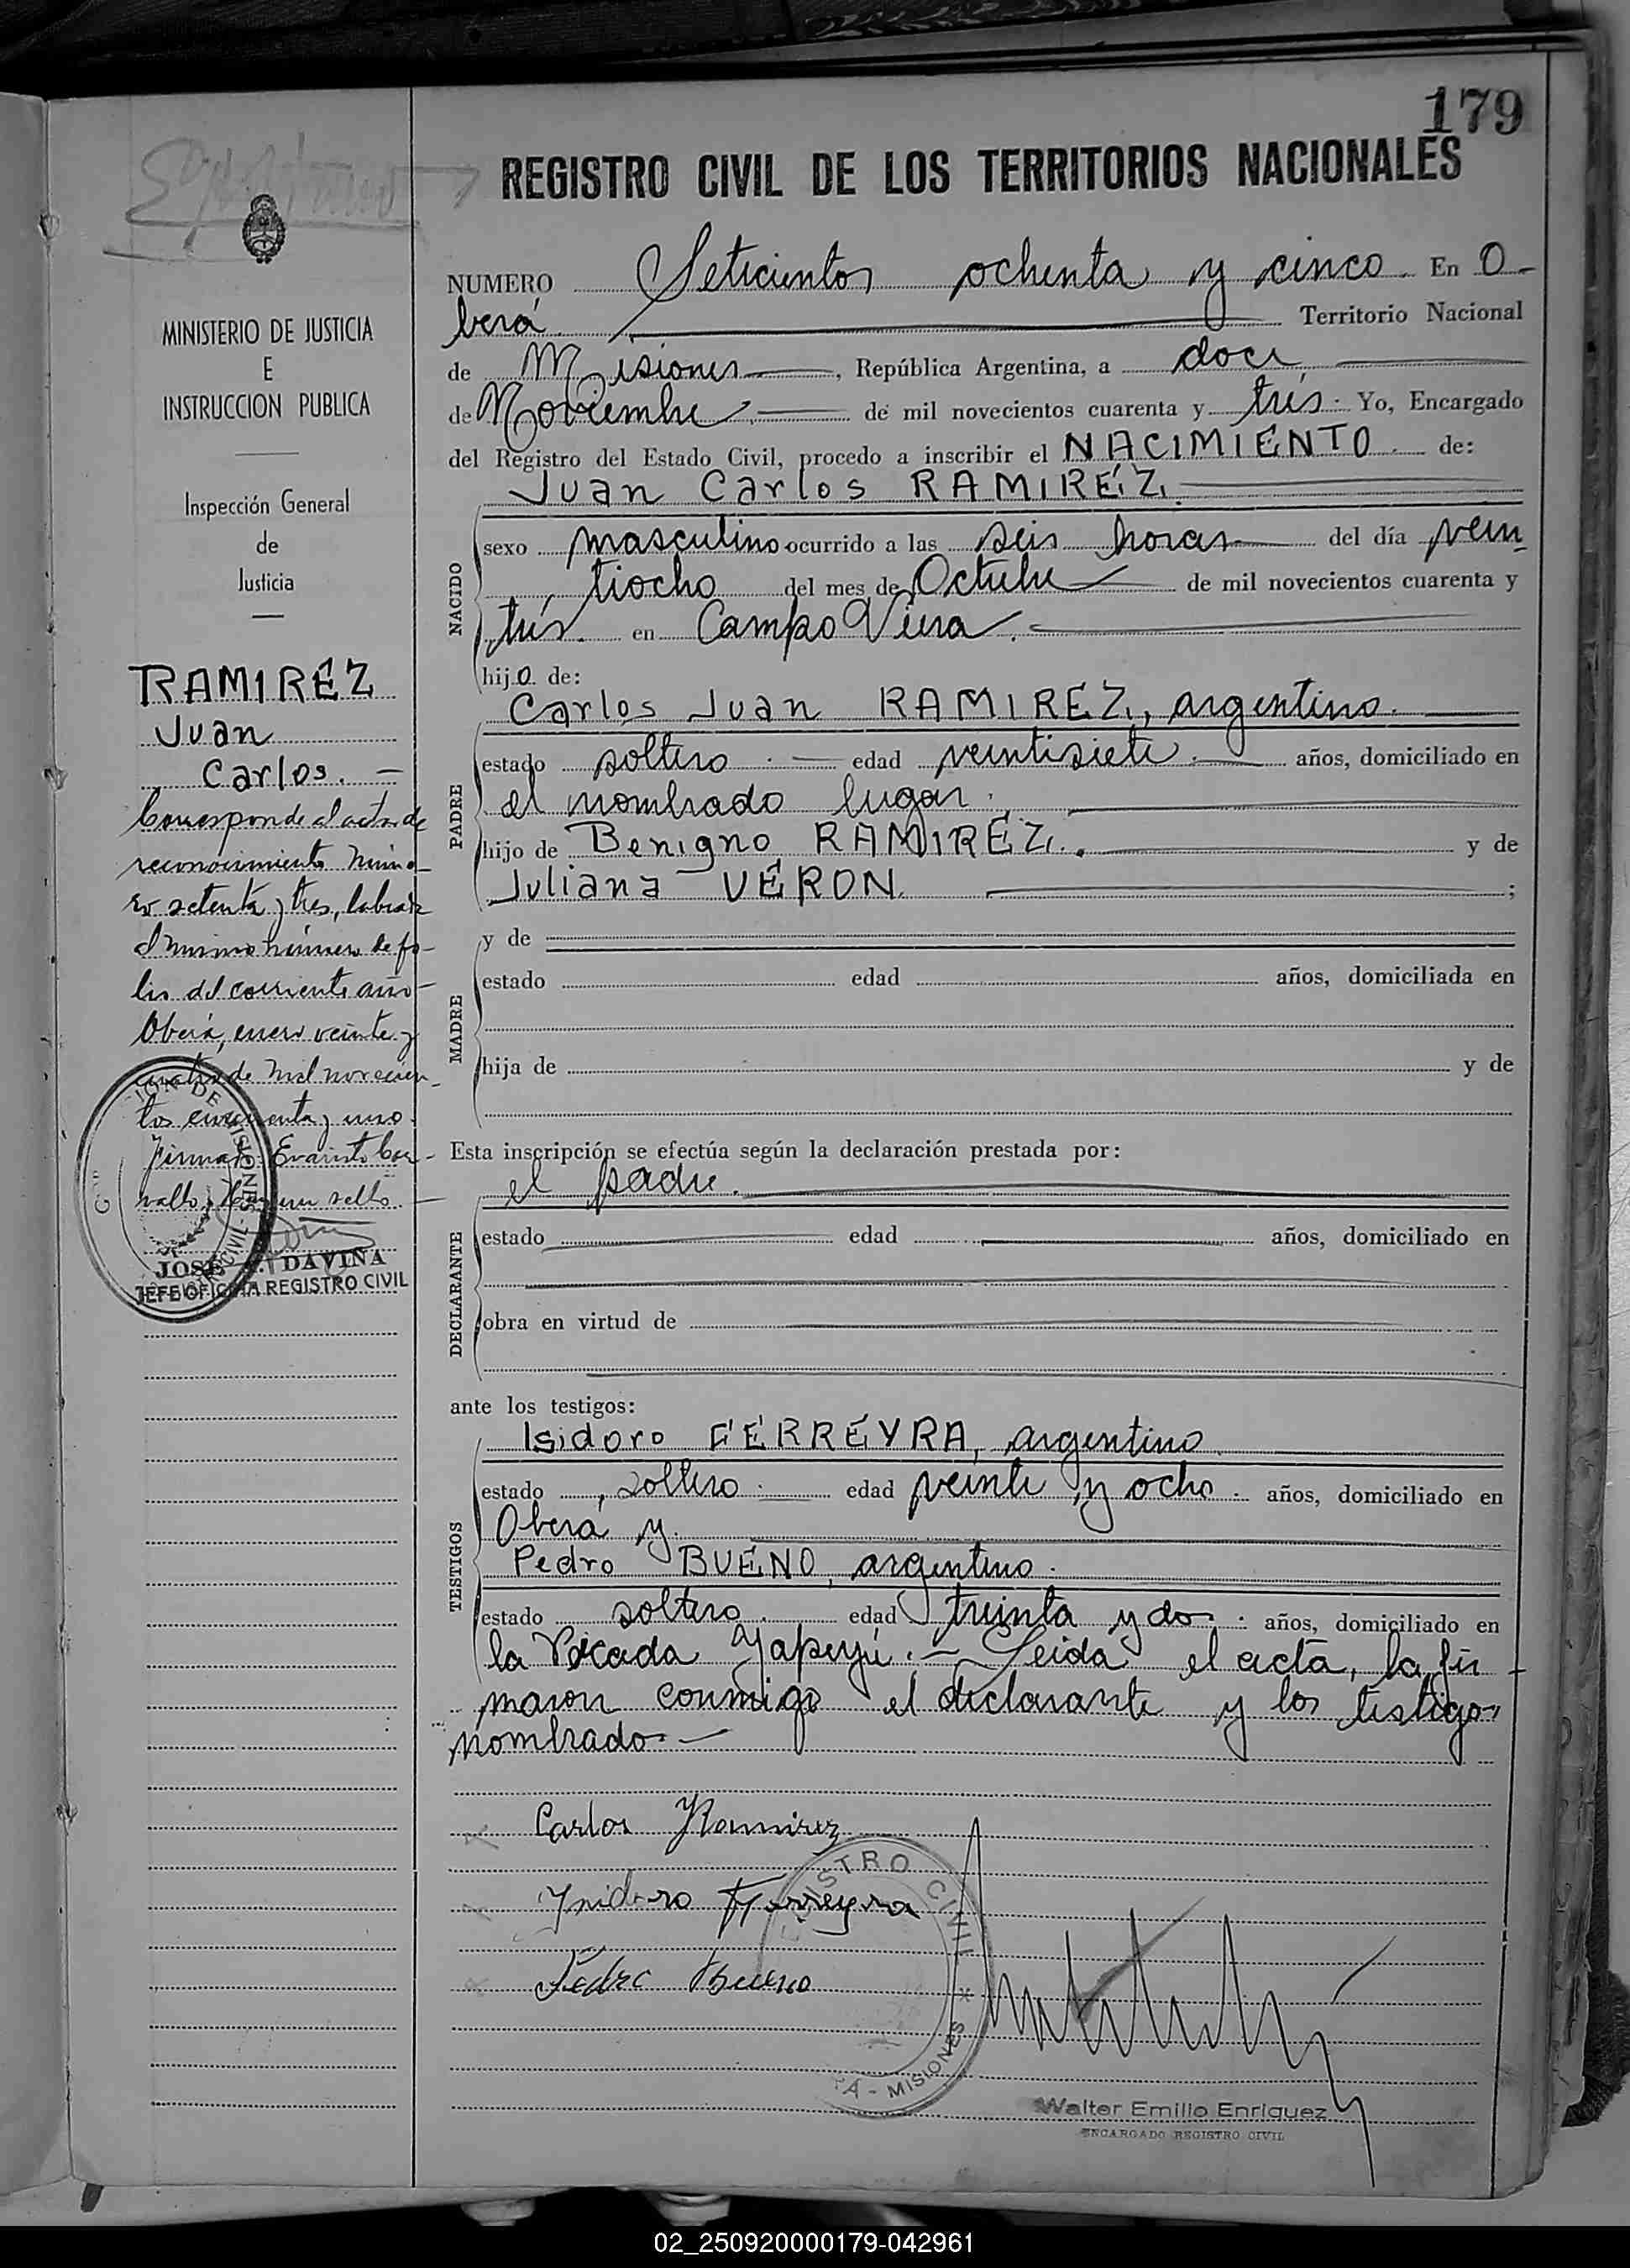 179
REGISTRO CIVIL DE LOS TERRITORIOS NACIONALES
NUMERO Seticientos ochenta y cinco. En O-
berá Territorio Nacional
de Misiones, República Argentina, a doce
de Noviembre de mil novecientos cuarenta y tres. Yo, Encargado
del Registro del Estado Civil, procedo a inscribir el NACIMIENTO de:
Juan Carlos RAMIREZ.
NACIDO
sexo masculino ocurrido a las seis horas del día vein
tiocho del mes de Octubre de mil novecientos cuarenta y
tres. en Campo Viera.
hijo de:
PADRE
Carlos Juan RAMIREZ, argentino.
estado soltero. edad veintisiete. años, domiciliado en
el nombrado lugar.
hijo de Benigno RAMIREZ. y de
Juliana VERON ;
MADRE
y de
estado edad años, domiciliada en
hija de y de
Esta inscripción se efectúa según la declaración prestada por:
el padre.
DECLARANTE
estado edad años, domiciliado en
obra en virtud de
ante los testigos:
TESTIGOS
Isidoro FERREYRA, argentino.
estado soltero. edad veinte y ocho. años, domiciliado en
Oberá y
Pedro BUENO, argentino.
estado soltero. edad treinta y dos. años, domiciliado en
la Picada Yapeyú.- Leida el acta, la fir-
maron conmigo el declarante y los testigos
nombrados.-
Carlos Ramirez
Ysidoro Ferreyra
Pedro Bueno
REGISTRO CIVIL
MISIONES
Walter Emilio Enriquez
ENCARGADO REGISTRO CIVIL
MINISTERIO DE JUSTICIA
E
INSTRUCCION PUBLICA
Inspección General
de
Justicia
RAMIREZ
Juan
Carlos.-
Corresponde al acta de
reconocimiento núme-
ro setenta y tres, labrada
al mismo número de fo-
lio del corriente año-
Oberá, enero veinte y
cuatro de mil novecien-
tos cincuenta y uno.
Firmado: Evaristo Car-
vallo, Hay un sello.-
JOSE DAVIÑA
JEFE OFICINA REGISTRO CIVIL
02_250920000179-042961